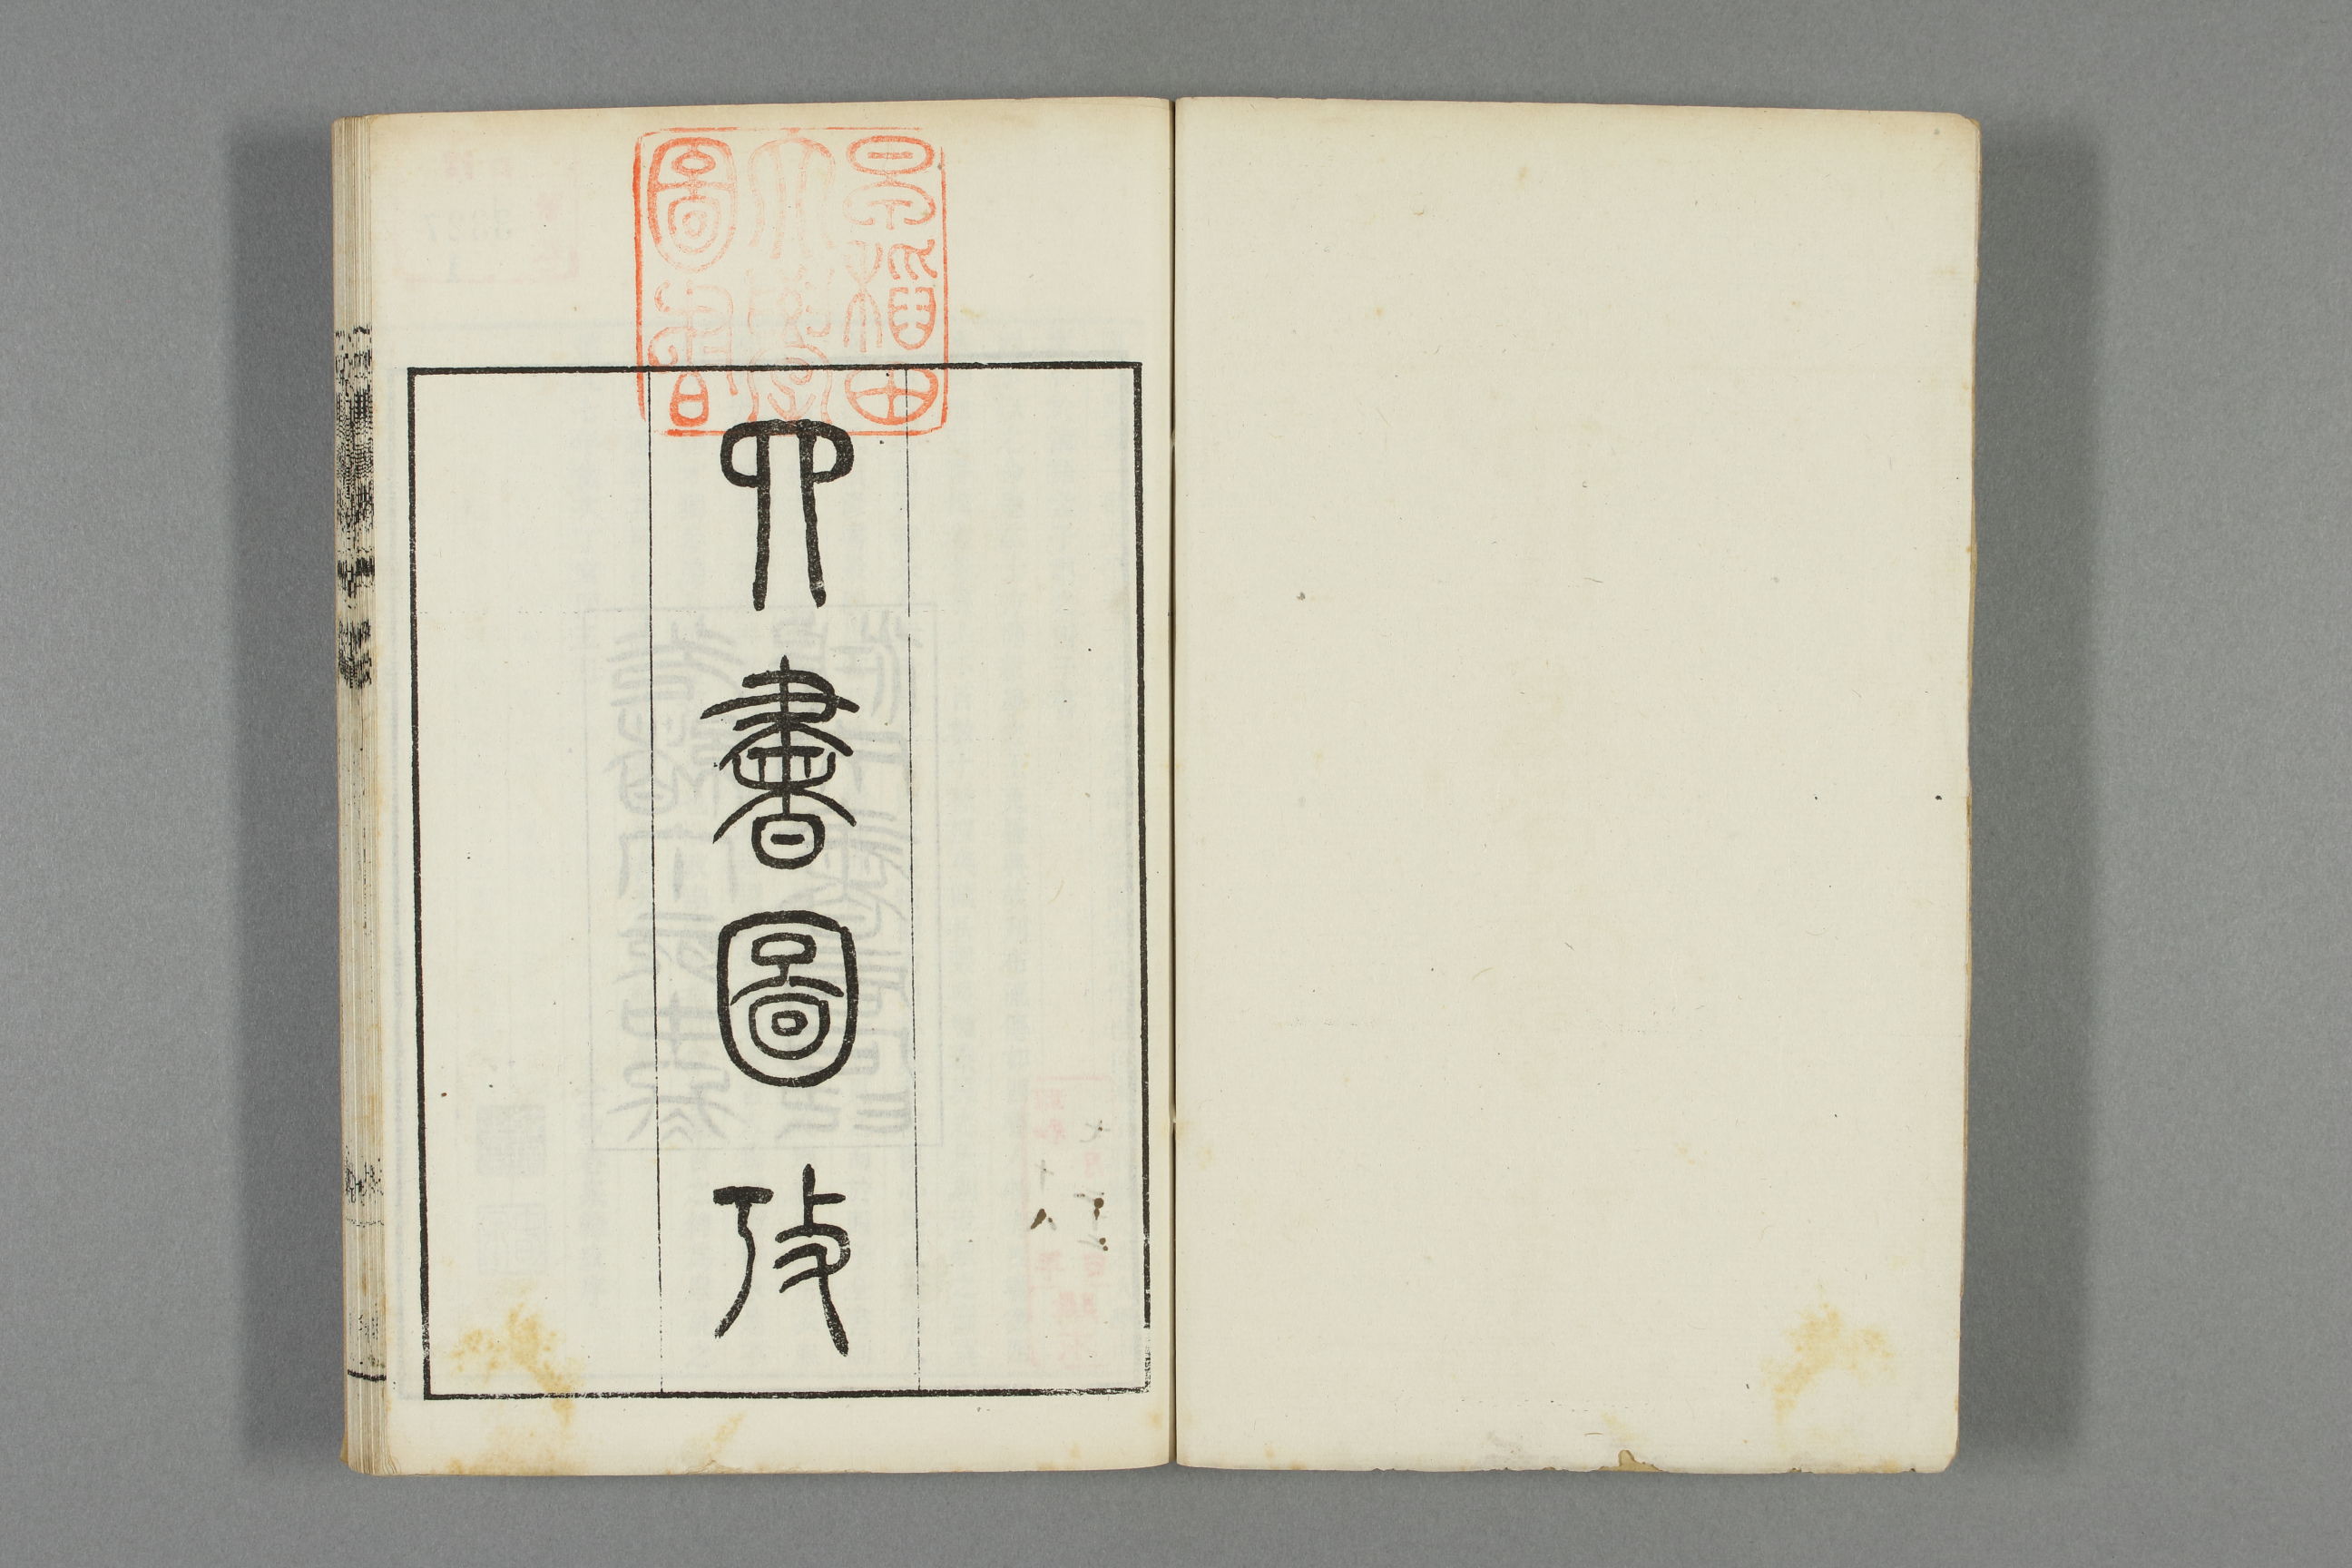 早稲田
大學
圖書
四書圖攷